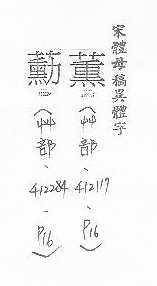 宋體母稿異體字
薫（艸部、412117、P16）
藑（艸部、412284、P16）